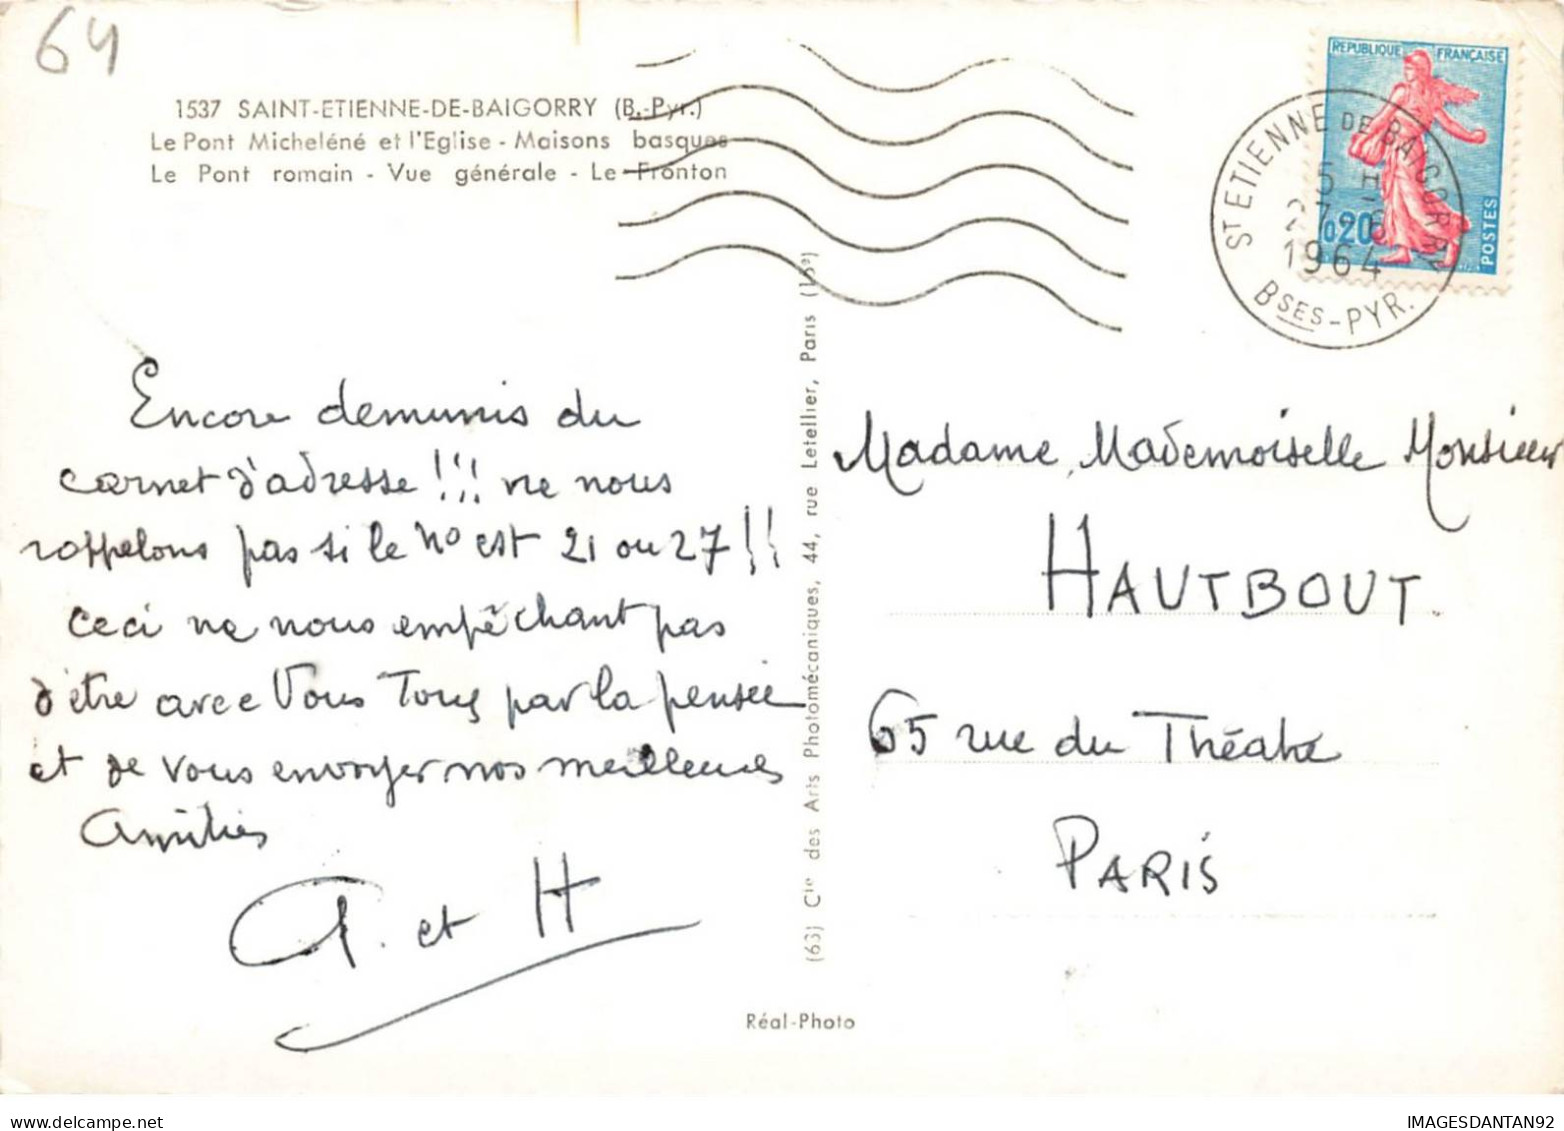 64
1537 SAINT-ETIENNE-DE-BAIGORRY (B.-Pyr.)
Le Pont Micheléné et l'Eglise - Maisons basques
Le Pont romain - Vue générale - Le Fronton
REPUBLIQUE FRANÇAISE
0,20
POSTES
ST ETIENNE DE BAIGORRY
15 H
27 - 8
1964
BSES-PYR.
Encore demunis du
carnet d'adresse !!! ne nous
rappelons pas si le N° est 21 ou 27 !!
Ceci ne nous empêchant pas
d'être avec Vous Tous par la pensée
et de vous envoyer nos meilleures
Amitiés
et H
(63) Cie des Arts Photomécaniques, 44, rue Letellier, Paris (15e)
Réal-Photo
Madame, Mademoiselle Monsieur
HAUTBOUT.
65 rue du Théatre
PARIS
delcampe.net
IMAGESDANTAN92